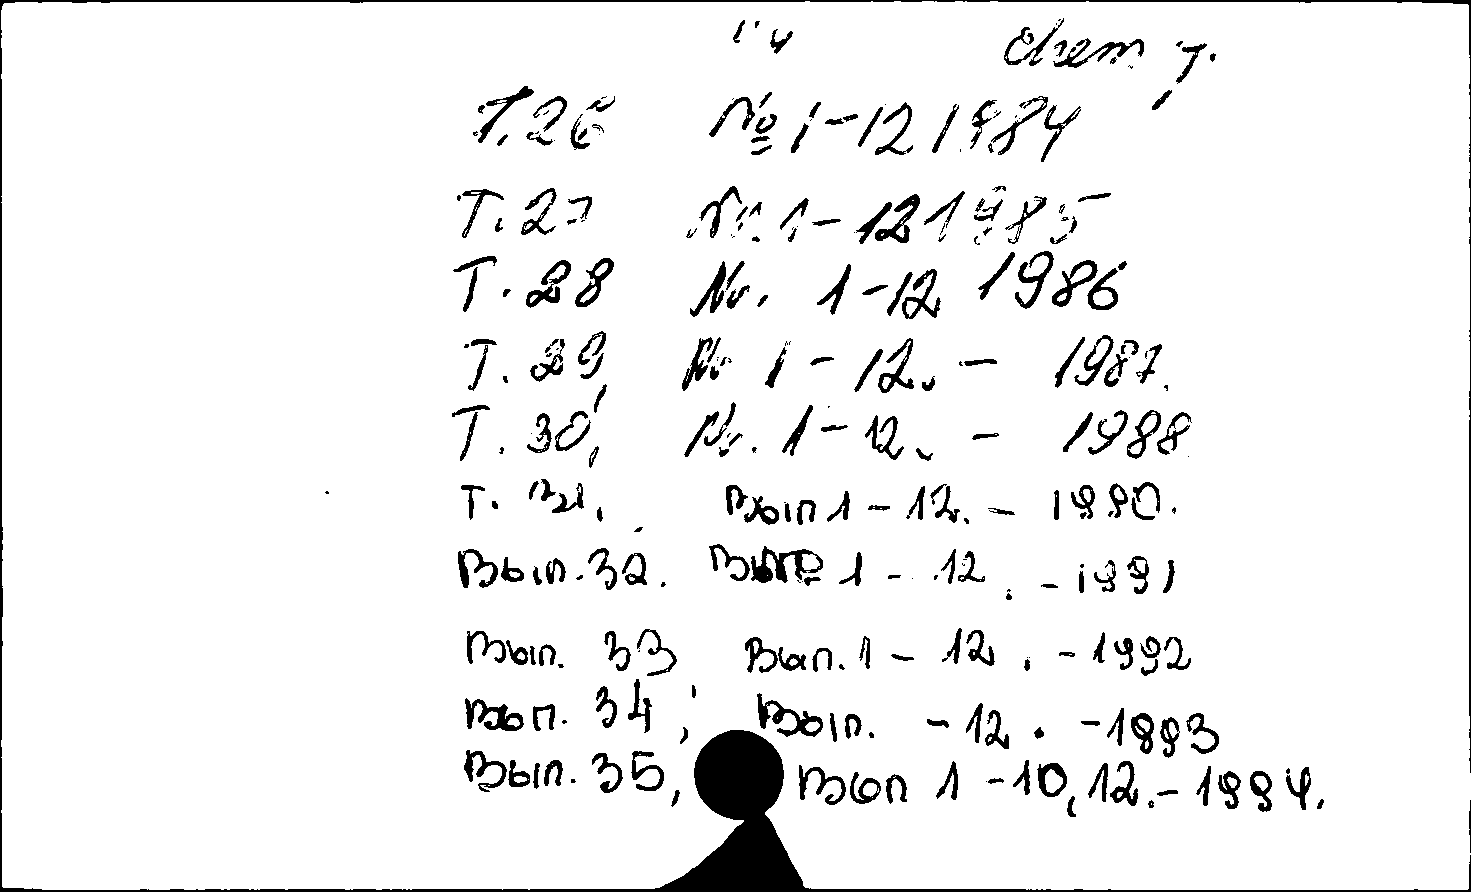 Chem 7.
T. 26 № 1-12 1984
T. 27 Nr. 1-12 1985
T. 28 Nr. 1-12 1986
T. 29, Nr 1-12. - 1987.
T. 30, Nr. 1-12. - 1988
T. 31, Вып 1-12. - 1990.
Вып. 32. Вып 1-12. - 1991
Вып. 33 Вып. 1-12. - 1992
Вып. 34, Вып. -12. - 1993
Вып. 35, Вып 1-10, 12. - 1994.